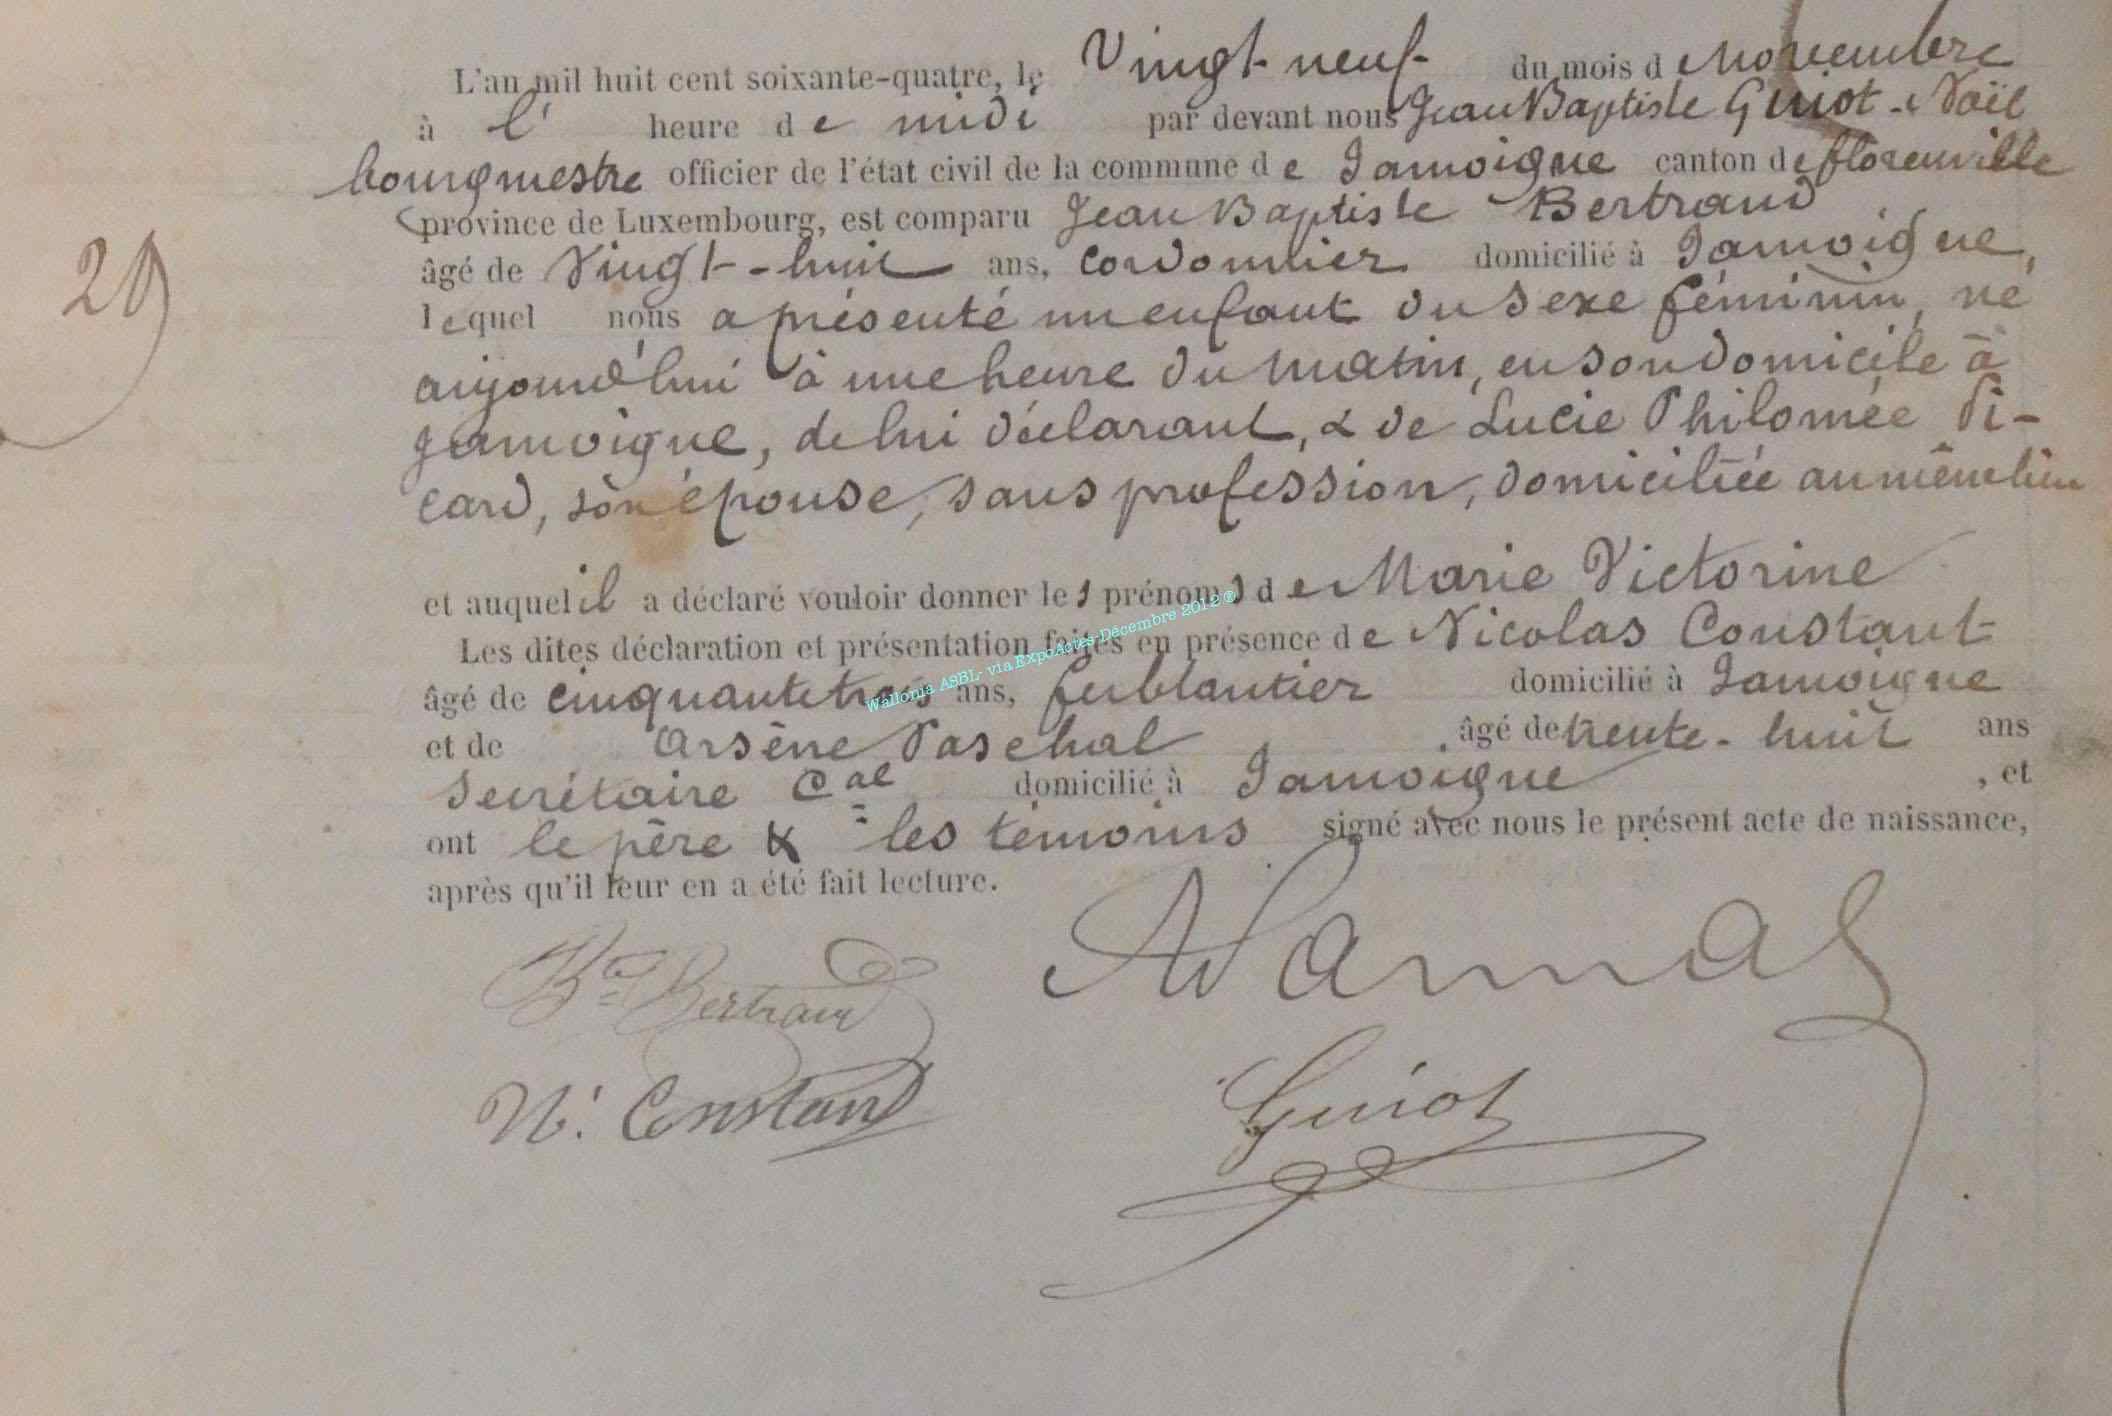 L'an mil huit cent soixante-quatre, le Vingt-neuf du mois de Novembre
à l' heure de midi par devant nous Jean Baptiste Guiot-Noël
bourgmestre officier de l'état civil de la commune de Jamoigne canton de florenville
province de Luxembourg, est comparu Jean Baptiste Bertrand
29
âgé de Vingt-huit ans, Cordonnier domicilié à Jamoigne,
lequel nous a présenté un enfant du sexe féminin, né
aujourd'hui à une heure du matin, en son domicile à
Jamoigne, de lui déclarant, & de Lucie Philomée Pi-
card, son épouse, sans profession, domiciliée au même lieu
et auquel il a déclaré vouloir donner les prénoms de Marie Victorine
Les dites déclaration et présentation faites en présence de Nicolas Constant
âgé de cinquante trois ans, ferblantier domicilié à Jamoigne
et de Arsène Paschal, âgé de trente-huit ans
Secrétaire Cal domicilié à Jamoigne, et
ont le père & les témoins signé avec nous le présent acte de naissance,
après qu'il leur en a été fait lecture.
Bertrand
N. Constant
Guiot
Wallonia ASBL- via ExpoActes-Décembre 2012 ®